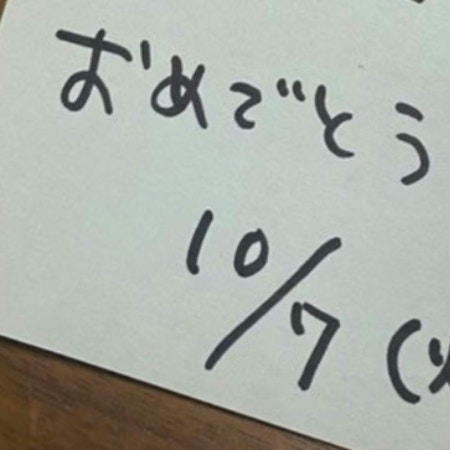 おめでとう
10/7（